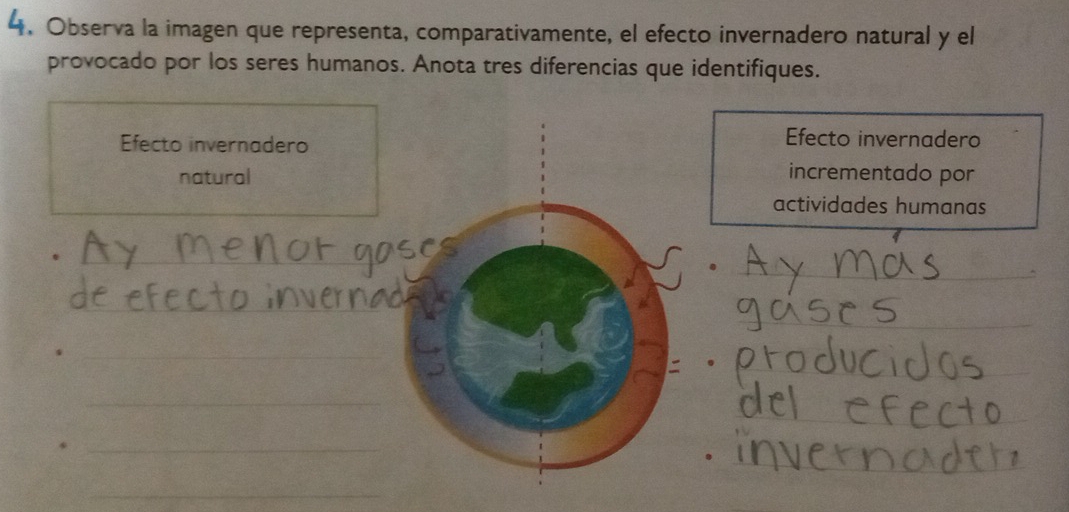 4. Observa la imagen que representa, comparativamente, el efecto invernadero natural y el
provocado por los seres humanos. Anota tres diferencias que identifiques.
Efecto invernadero
natural
Efecto invernadero
incrementado por
actividades humanas
• Ay menor gases
de efecto invernad
•
•
• Ay mas
gases
• producidos
del efecto
• invernadero